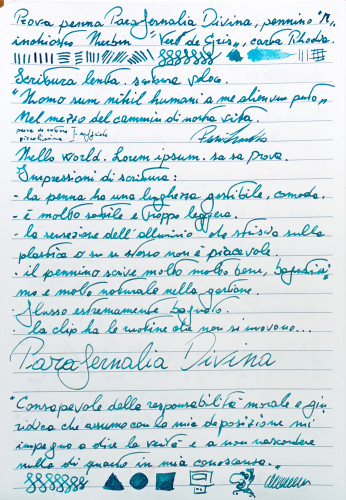 Prova penna Parafernalia Divina, pennino "M",
inchiostro Herbin "Vert de Gris", carta Rhodia.
Scrittura lenta. veloce.
"Homo sum nihil humani a me alienum puto"
Nel mezzo del cammin di nostra vita
prova di corsivo
piccolissimo
Hello world. Lorem ipsum. sa sa prova.
Impressioni di scrittura:
- la penna ha una lunghezza gestibile, comoda.
- è molto sottile e troppo leggera.
- la sensazione dell'alluminio che striscia sulla
plastica o su se stesso non è piacevole.
- il pennino scrive molto molto bene, bagnatis"
mo e molto naturale nella gestione.
- flusso estremamente bagnato.
- la clip ha le rotine che non si muovono...
Parafernalia Divina
"Consapevole della responsabilità morale e giu
ridica che assumo con la mia deposizione mi
impegno a dire la verità e a non nascondere
nulla di quanto in mia conoscenza."